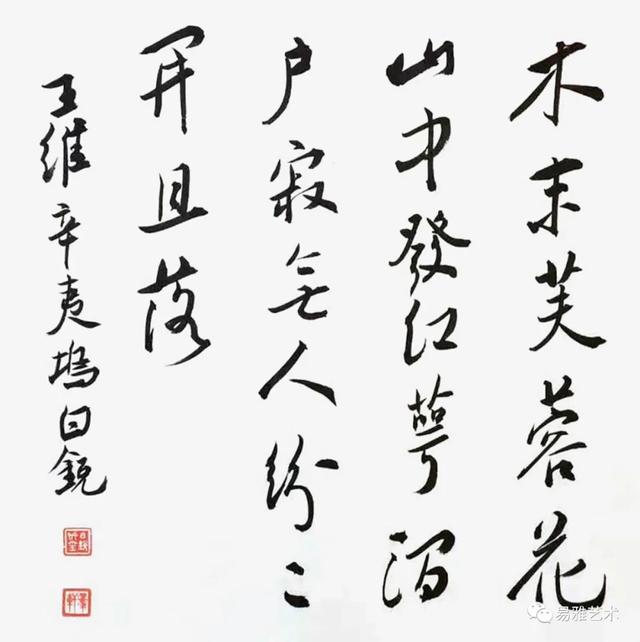 木末芙蓉花
山中發红萼澗
户寂無人紛々
開且落
王維辛夷塢白銳
易雅艺术